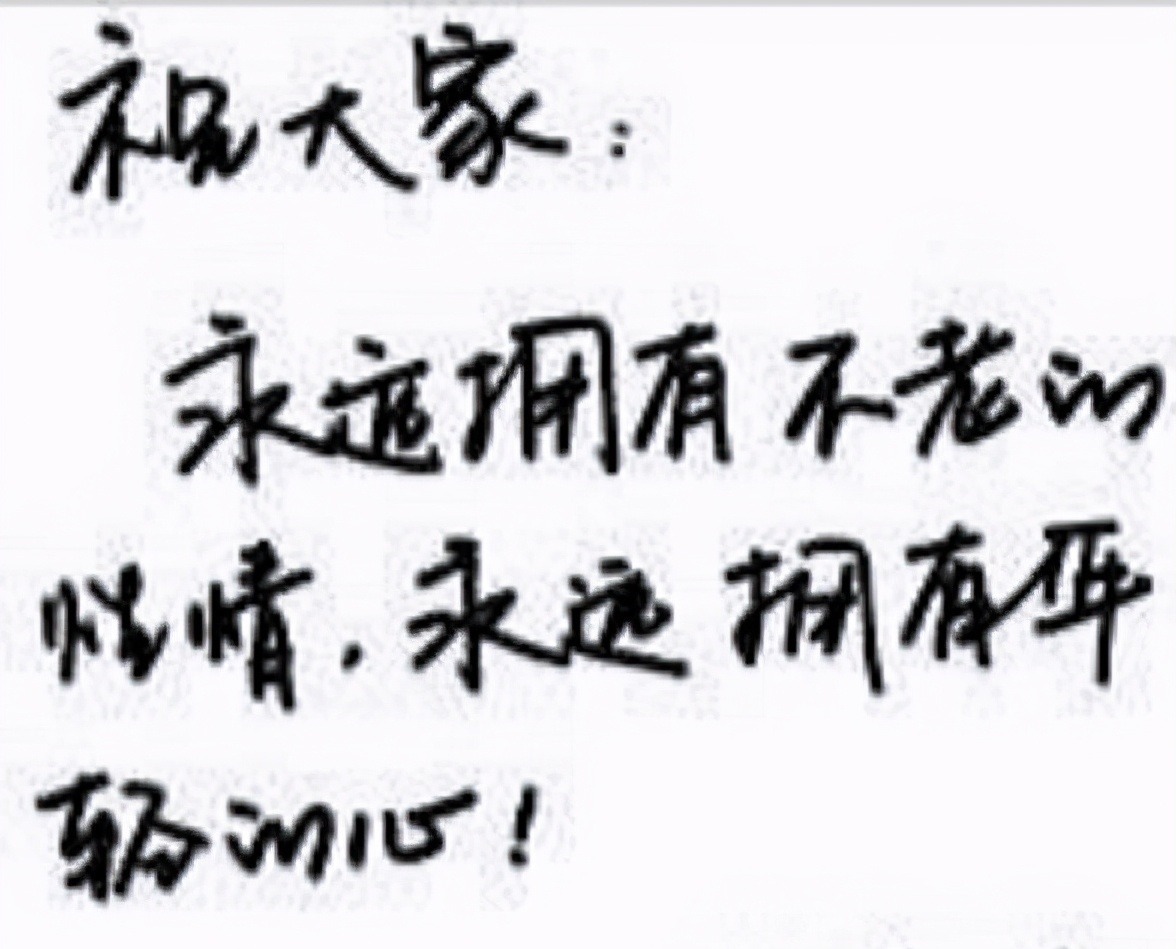 祝大家:
永远拥有不老的
性情.永远拥有年
轻的心!